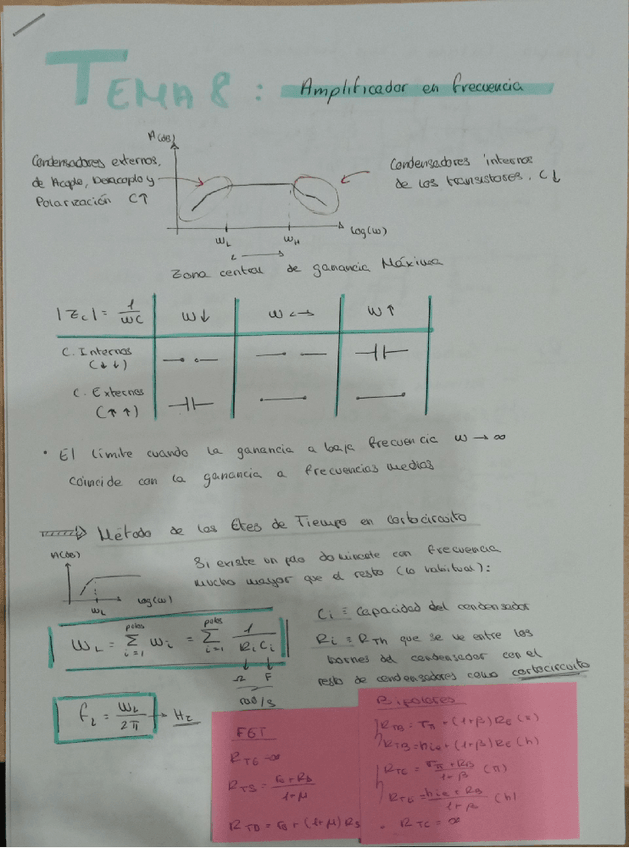 TEMA 8 : Amplificador en frecuencia
A(dB)
Condensadores externos,
de Acoplo, Desacoplo y
Polarización C↑
Condensadores internos
de los transistores. C↓
ωL
ωH
Log(ω)
Zona central de ganancia Máxima
|Zc| = 1/ωC ω↓ ω ↔ ω↑
C. Internos
(↓↓)
C. Externos
(↑↑)
· El límite cuando la ganancia a baja frecuencia ω → ∞
coincide con la ganancia a frecuencias medias
Método de las Ctes de Tiempo en cortocircuito
A(dB)
ωL
log(ω)
Si existe un polo dominante con frecuencia
mucho mayor que el resto (lo habitual):
ωL = polos Σ i=1 ωi = polos Σ i=1 1/(Ri Ci)
Ω F
rad/s
Ci ≡ Capacidad del condensador
Ri ≡ RTH que se ve entre los
bornes del condensador con el
resto de condensadores como cortocircuito
fL = ωL/2π → Hz
FET
RTG = ∞
RTS = (r0 + RD)/(1+μ)
RTD = r0 + (1+μ) RS
Bipolares
RTB = rπ + (1+β) RE (π)
RTB = hie + (1+β) RE (h)
RTE = (rπ + RB)/(1+β) (π)
RTE = (hie + RB)/(1+β) (h)
RTC = ∞